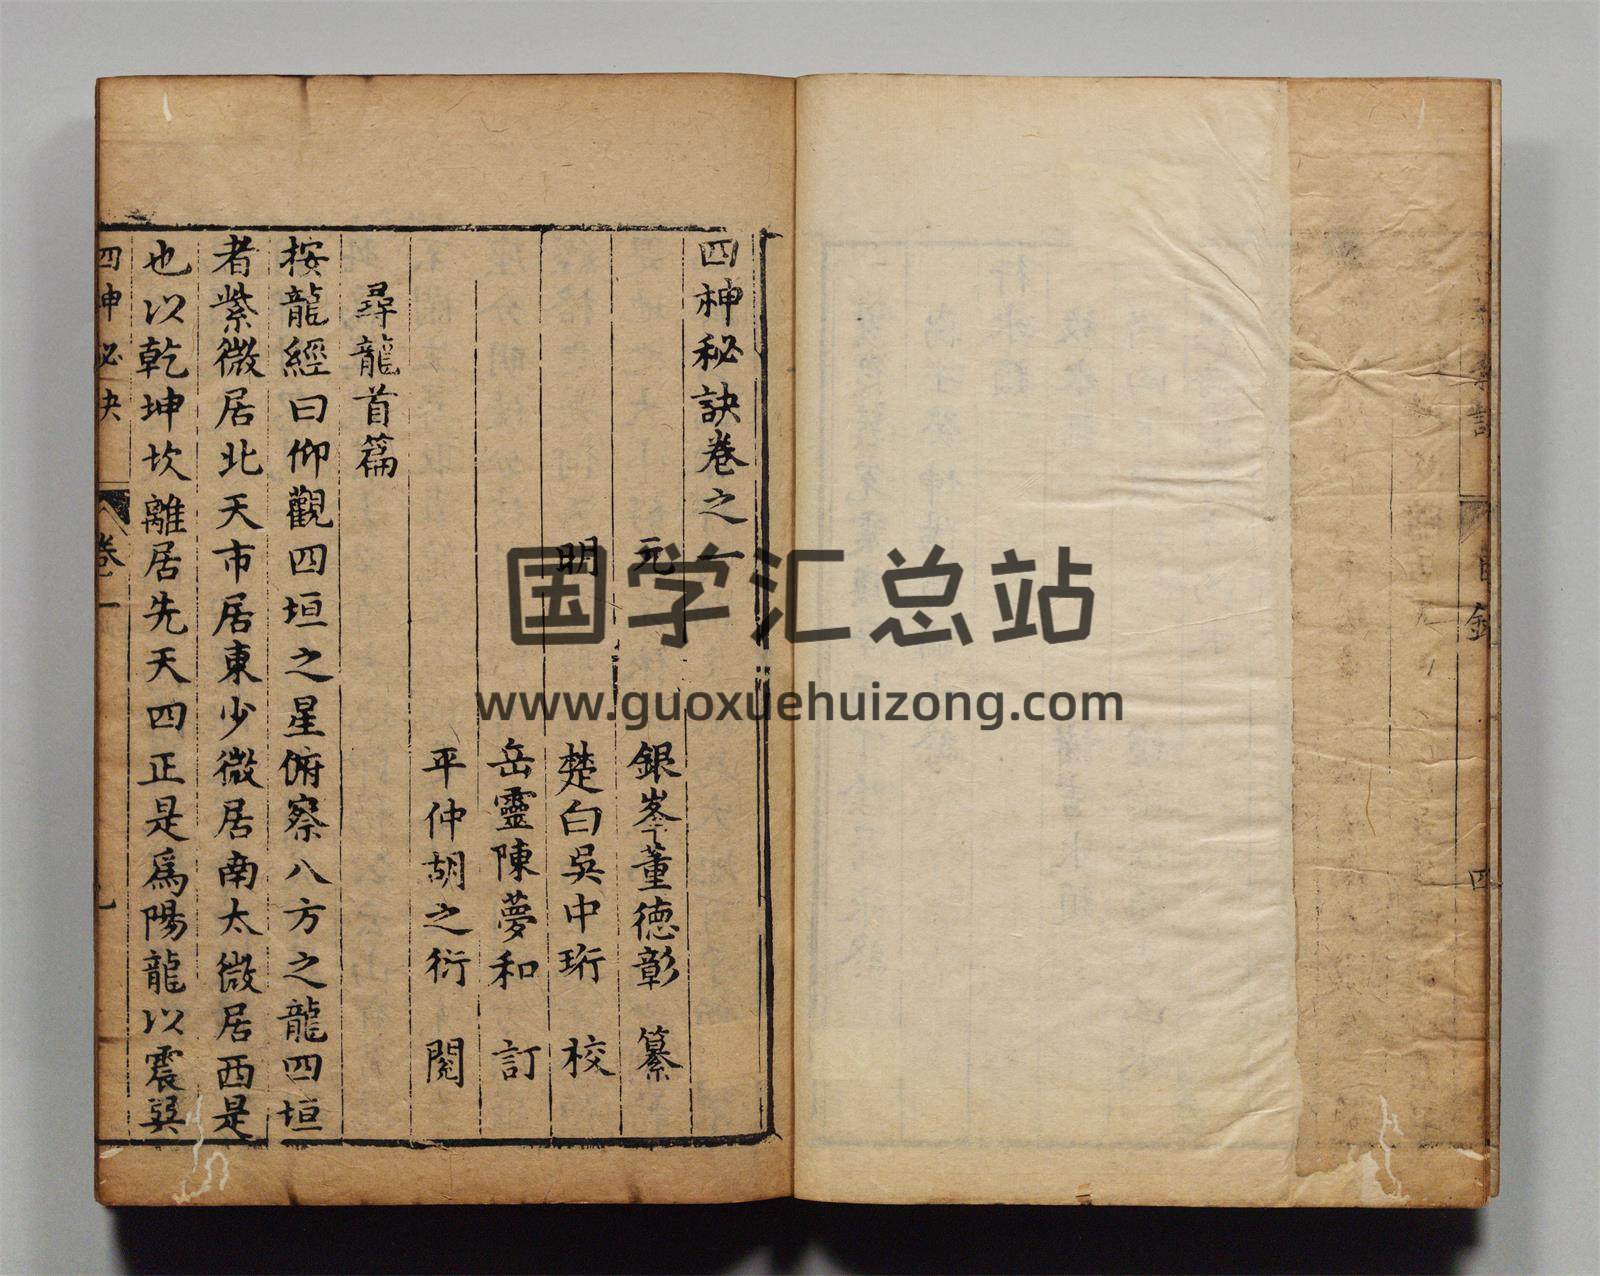 四神秘訣卷之一
元 銀峯董德彰 纂
明 楚白吳中珩 校
岳靈陳夢和 訂
平仲胡之衍 閱
尋龍首篇
按龍經曰仰觀四垣之星俯察八方之龍四垣
者紫微居北天市居東少微居南太微居西是
也以乾坤坎離居先天四正是爲陽龍以震巽
四神祕決 卷一
目錄 四
国学汇总站
www.guoxuehuizong.com